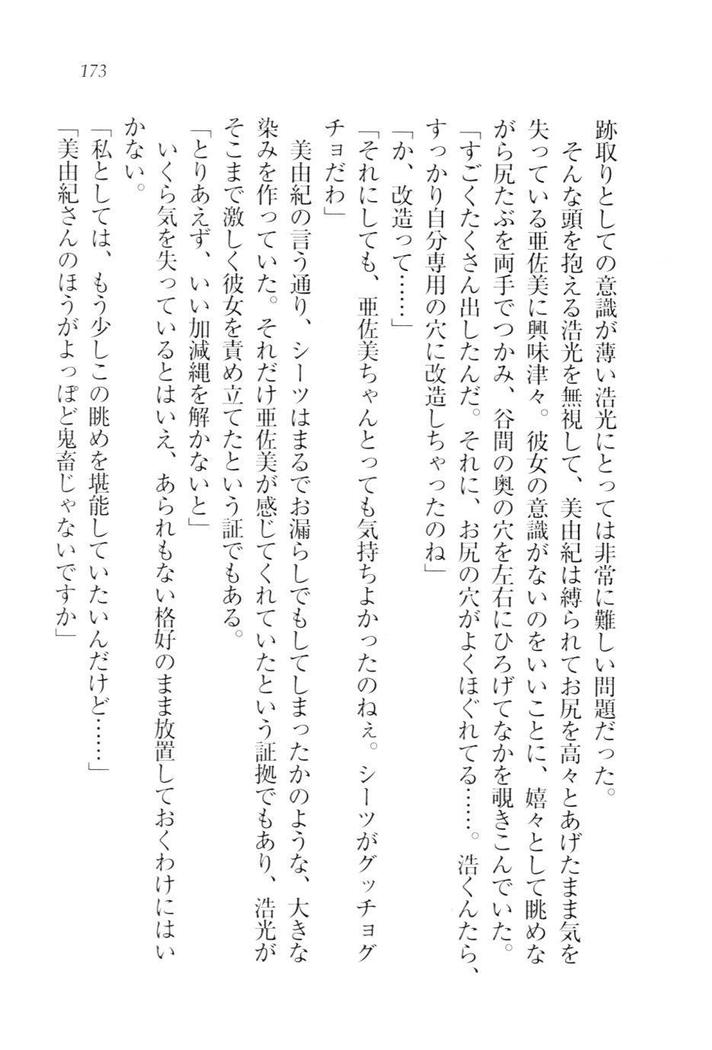 173
跡取りとしての意識が薄い浩光にとっては非常に難しい問題だった。
そんな頭を抱える浩光を無視して、美由紀は縛られてお尻を高々とあげたまま気を
失っている亜佐美に興味津々。彼女の意識がないのをいいことに、嬉々として眺めな
がら尻たぶを両手でつかみ、谷間の奥の穴を左右にひろげてなかを覗きこんでいた。
「すごくたくさん出したんだ。それに、お尻の穴がよくほぐれてる……。浩くんたら、
すっかり自分専用の穴に改造しちゃったのね」
「か、改造って……」
「それにしても、亜佐美ちゃんとっても気持ちよかったのねぇ。シーツがグッチョグ
チョだわ」
美由紀の言う通り、シーツはまるでお漏らしでもしてしまったかのような、大きな
染みを作っていた。それだけ亜佐美が感じてくれていたという証拠でもあり、浩光が
そこまで激しく彼女を責め立てたという証でもある。
「とりあえず、いい加減縄を解かないと」
いくら気を失っているとはいえ、あられもない格好のまま放置しておくわけにはい
かない。
「私としては、もう少しこの眺めを堪能していたいんだけど……」
「美由紀さんのほうがよっぽど鬼畜じゃないですか」